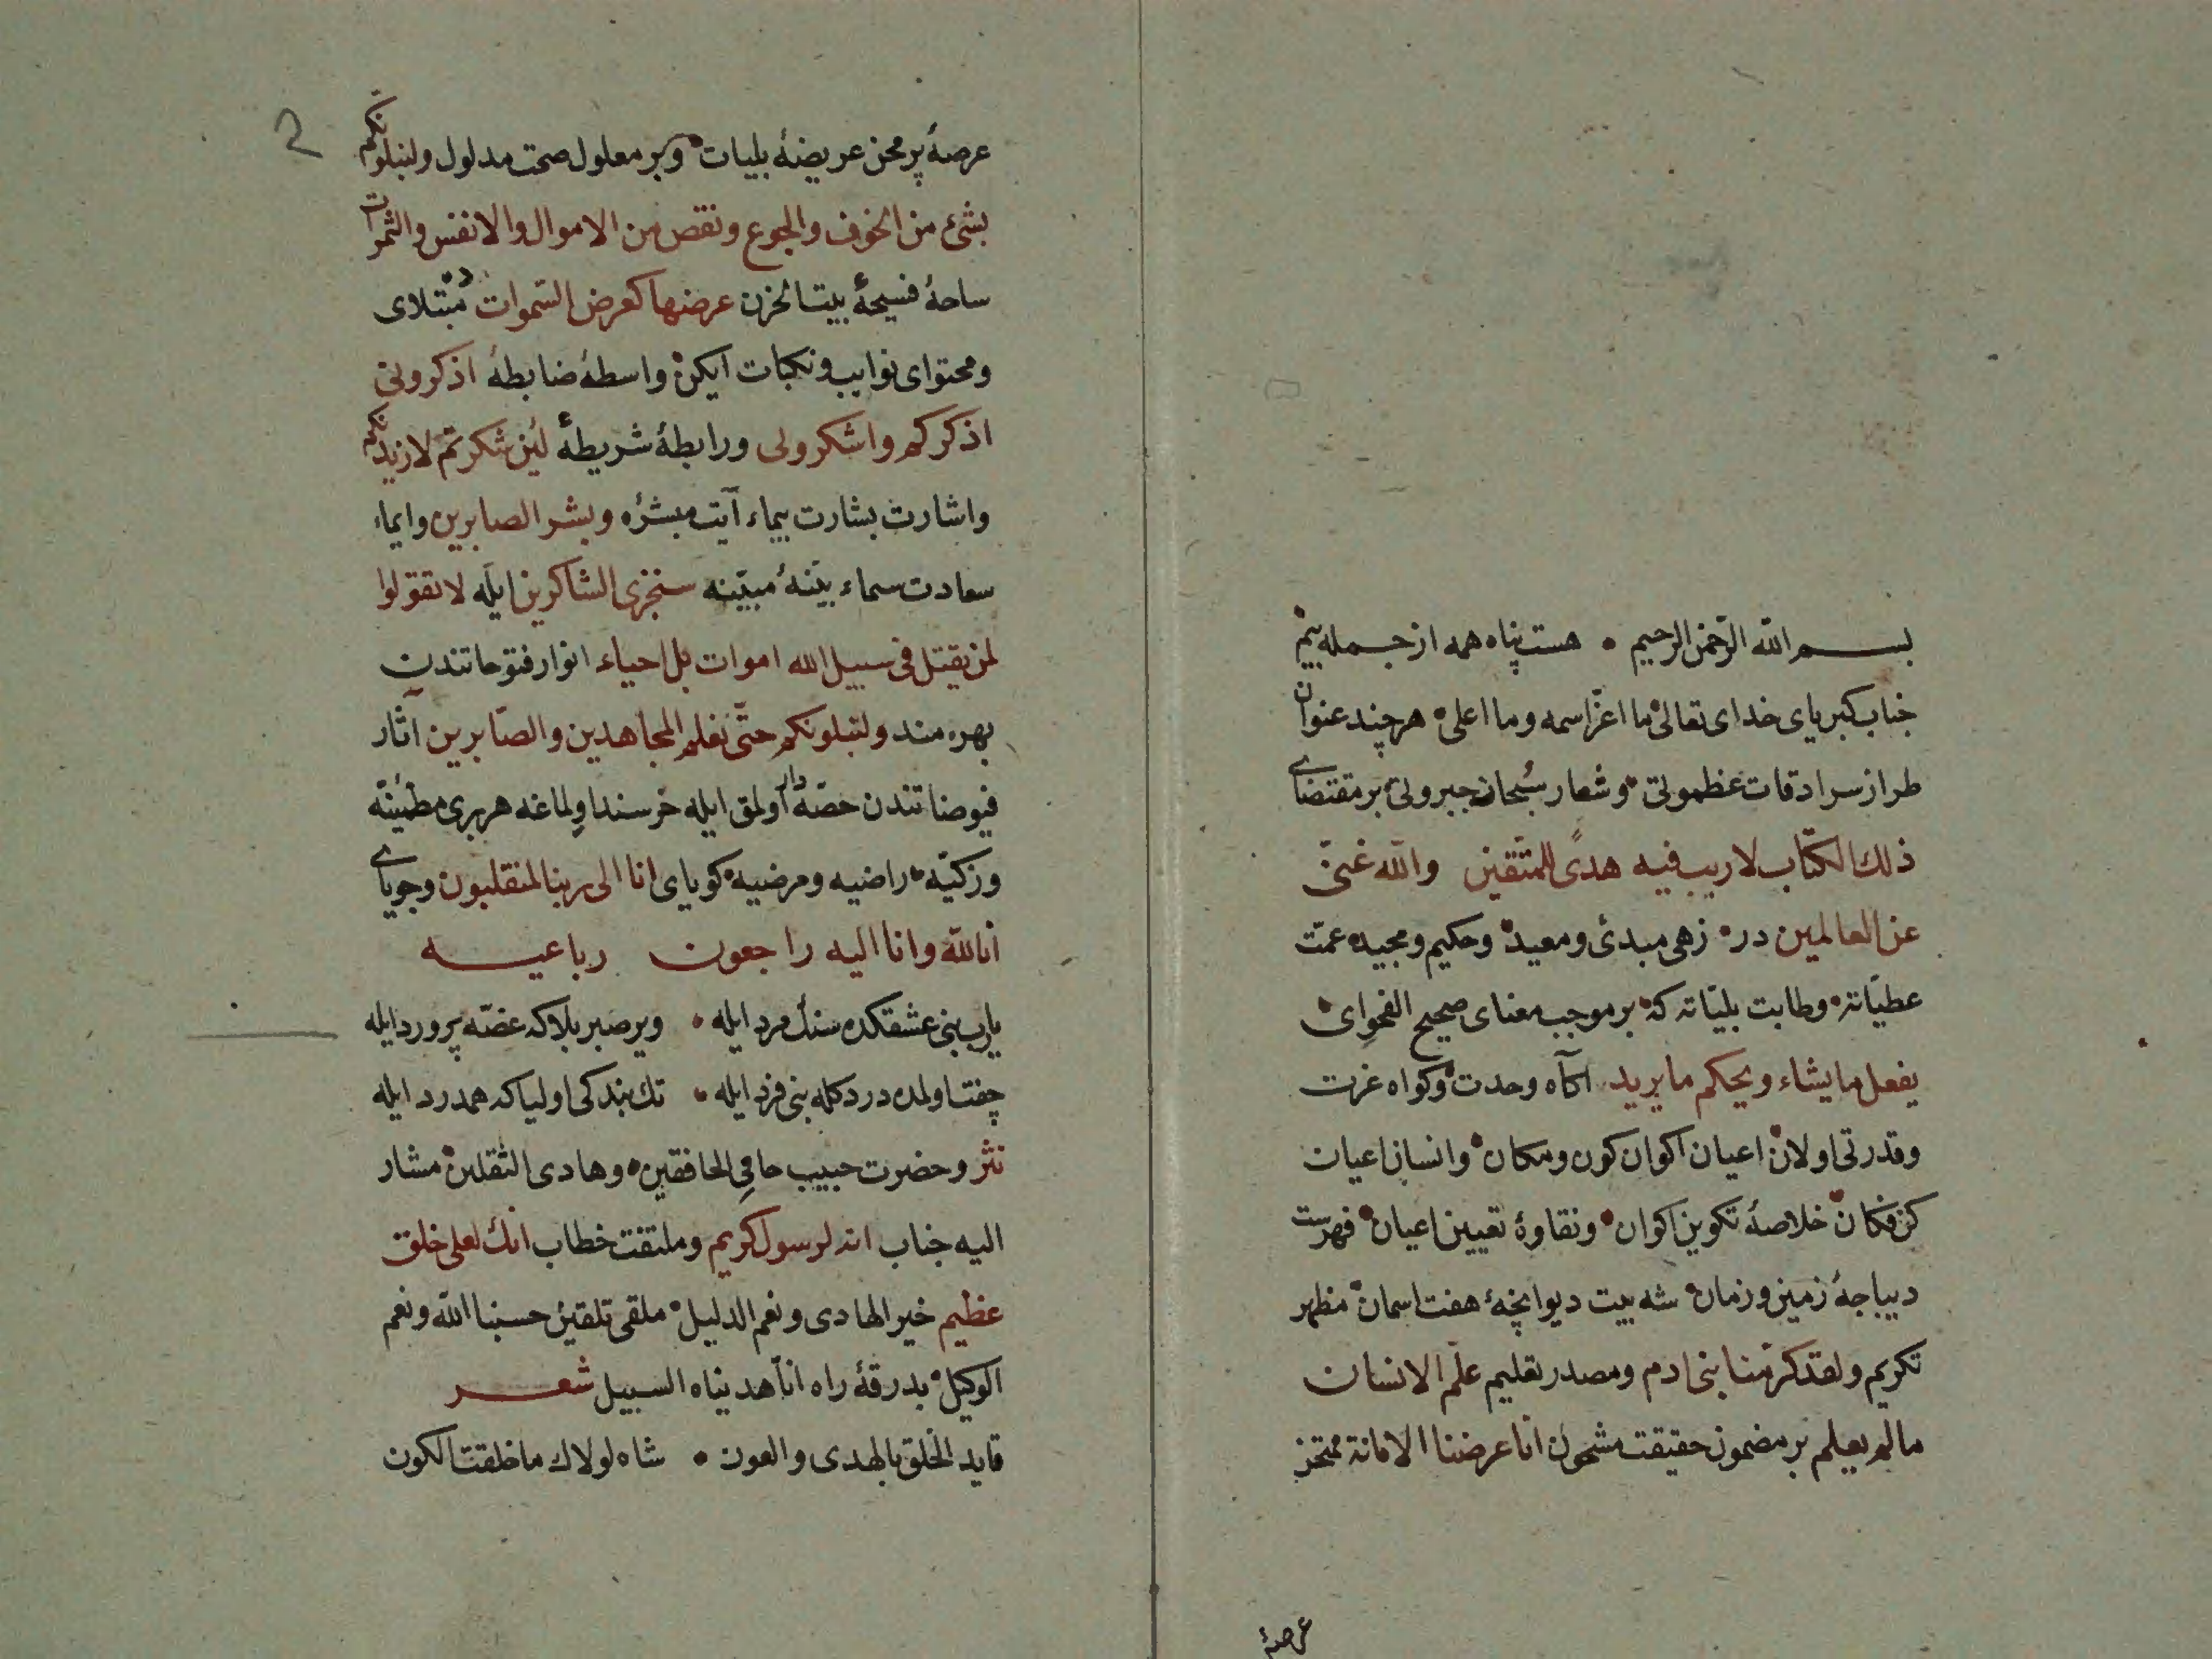 بسم الله الرّحمن الرحيم • هست پناه همه از جمله بيم
جناب كبرياى خداى تعالى ما اعزّ اسمه وما اعلى هر چند عنوان
طراز سرادقات عظموتى • وشعار سُبحان جبروتى بر مقتضاى
ذلك الكتاب لا ريب فيه هدًى للمتّقين والله غنىّ
عن العالمين در • زهى مبدئ ومعيد • وحكيم ومجيد عمّت
عطيّاته • وطابت بليّاته كه • بر موجب معناى صحيح الفحواى •
يفعل ما يشاء ويحكم ما يريد اكاه وحدت وكواه عزت
وقدرتى اولان اعيان اكوان كون ومكان • وانسان اعيان
كن فكان • خلاصهٔ تكوين اكوان • ونقاوهٔ تعيين اعيان • فهرست
ديباجهٔ زمين وزمان • شه بيت ديوانچهٔ هفت اسمان • مظهر
تكريم ولقد كرّمنا بنى ادم ومصدر تعليم علّم الانسان
ما لم يعلم بر مضمون حقيقت مشحون انّا عرضنا الامانة ممتحن
عرصهٔ
2
عرصهٔ پر محن عريضهٔ بليات • وبر معلول صحت مدلول ولنبلونكم
بشئ من الخوف والجوع ونقص من الاموال والانفس والثمرات
ساحهٔ فسيحهٔ بيت الحزن عرضها كعرض السّموات ده مبتلاى
ومحتواى نوايب ونكبات ايكن • واسطهٔ ضابطهٔ اذكرونى
اذكركم واشكرولى ورابطهٔ شريطهٔ لئن شكرتم لازيدنكم
واشارت بشارت يماء آيت مبشرهٔ وبشر الصابرين وايماء
سعادت سماء بيّنهٔ مبيّنه سنجزى الشاكرين ايله لا تقولوا
لمن يقتل فى سبيل الله اموات بل احياء انوار فتوحاتندن
بهره مند ولنبلونكم حتّى نعلم المجاهدين والصّابرين آثار
فيوضاتندن حصّه دار اولمق ايله خرسند اولماغه هر برى مطمئنّه
وزكيّه • راضيه ومرضيه • كوياى انا الى ربنا لمنقلبون وجوياى
انا لله وانا اليه راجعون رباعيه
يارب بنى عشقكده سنك مرد ايله • وير صبر بلاكه غصّه پرورد ايله
جفت اولمه دردكله بنى فرد ايله • تك بندكى اولياكه همدرد ايله
نثر وحضرت حبيب حامى الخافقين • وهادى الثقلين • مشار
اليه جناب انه لرسول كريم وملتفت خطاب انك لعلى خلق
عظيم خير الهادى ونعم الدليل • ملقى تلقين حسبنا الله ونعم
الوكيل • بدرقهٔ راه انّا هديناه السبيل شعر
قايد الخلق بالهدى والعون • شاه لولاك ما خلقت الكون